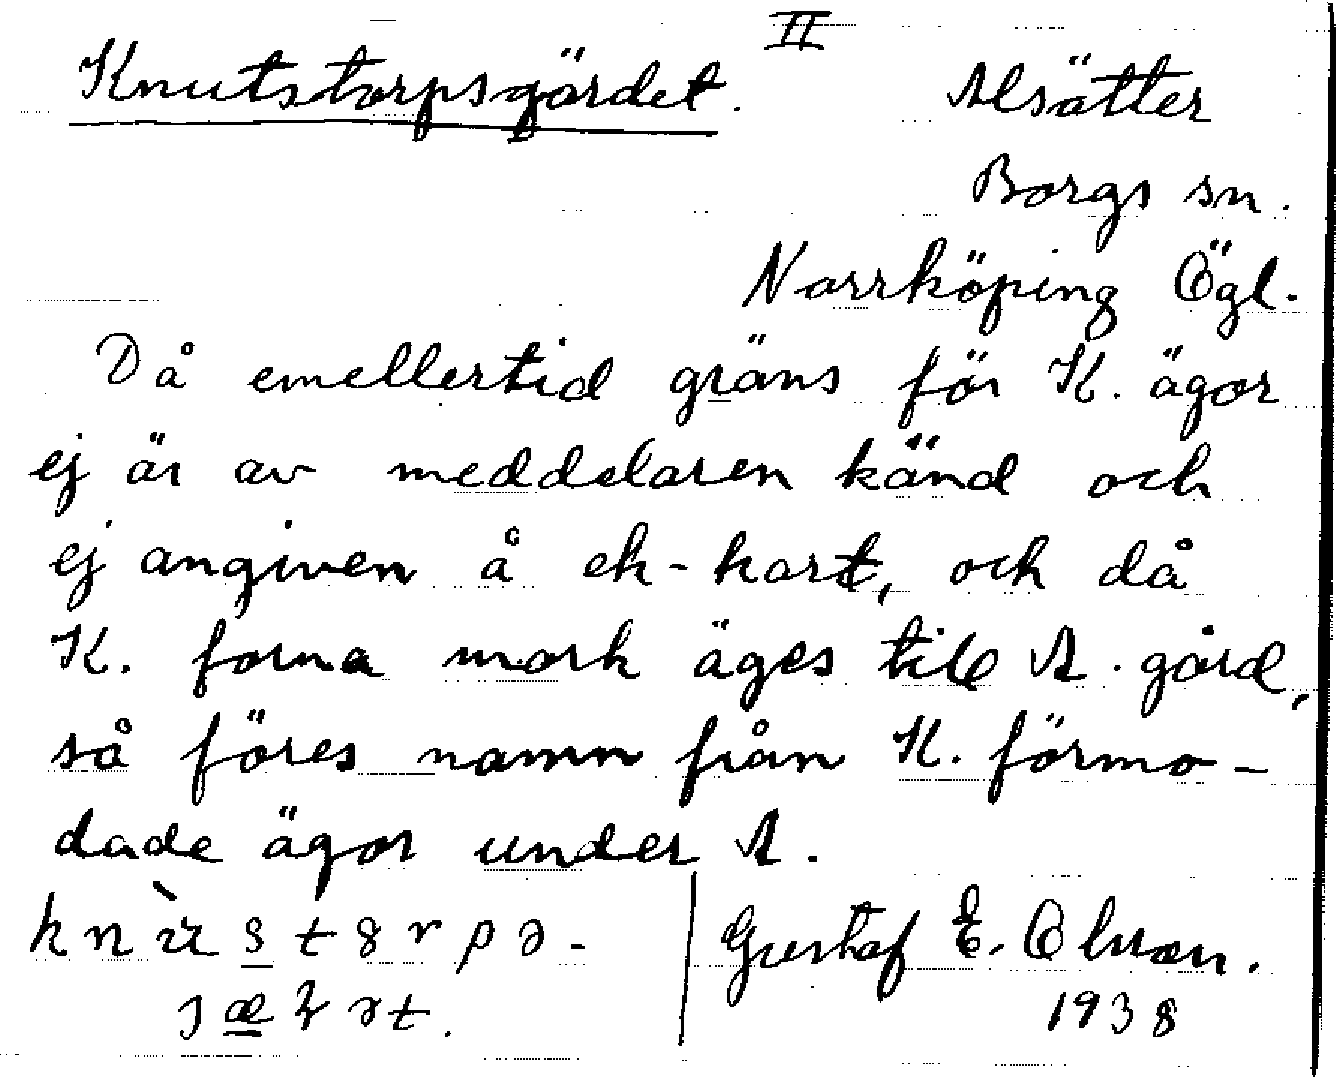 II
Knutstorpsgärdet. Alsätter
Borgs sn.
Norrköping Ögl.
Då emellertid gräns för K. ägor
ej är av meddelaren känd och
ej angiven å ek-kart, och då
K. forna mark äges till A. gård,
så föres namn från K. förmo-
dade ägor under A.
Gustaf E. Olsson.
1938